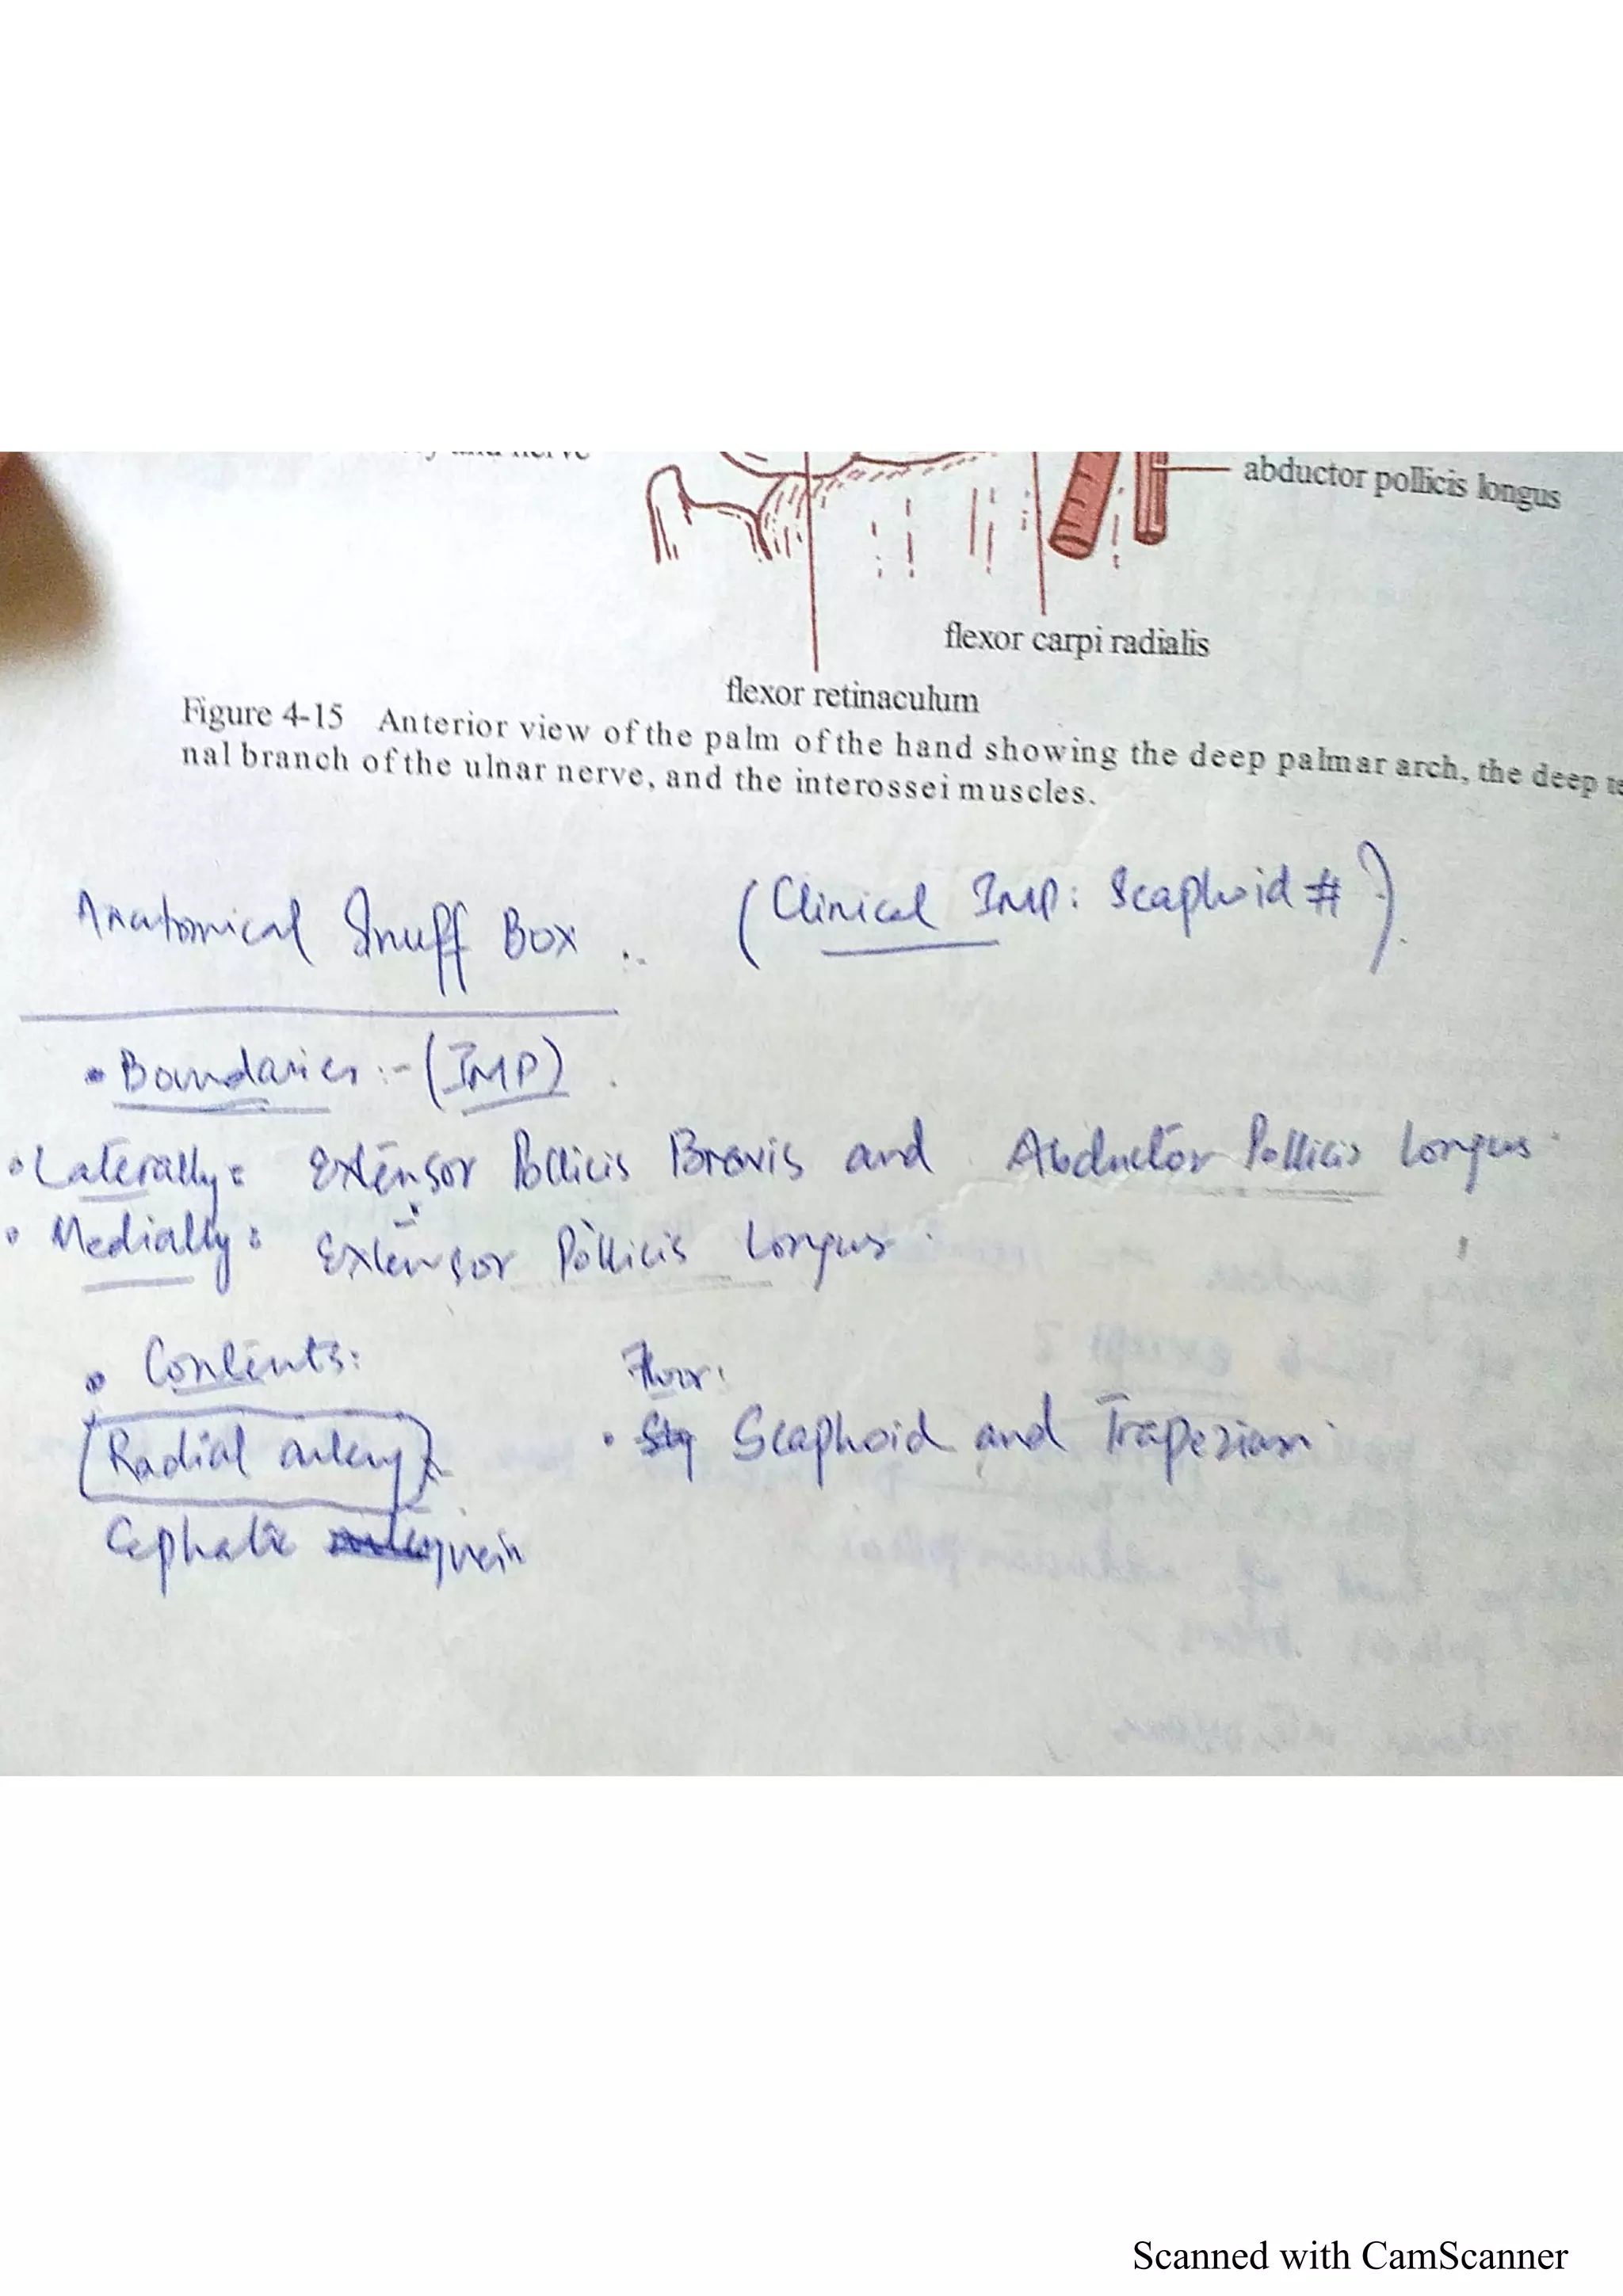 abductor pollicis longus
flexor carpi radialis
flexor retinaculum
Figure 4-15 Anterior view of the palm of the hand showing the deep palmar arch, the deep te
nal branch of the ulnar nerve, and the interossei muscles.
Anatomical Snuff Box (Clinical IMP: Scaphoid #)
• Boundaries :- (IMP)
• Laterally: Extensor Pollicis Brevis and Abductor Pollicis Longus.
• Medially: Extensor Pollicis Longus.
• Contents: Floor:
Radial artery • Scaphoid and Trapezium.
Cephalic vein
Scanned with CamScanner